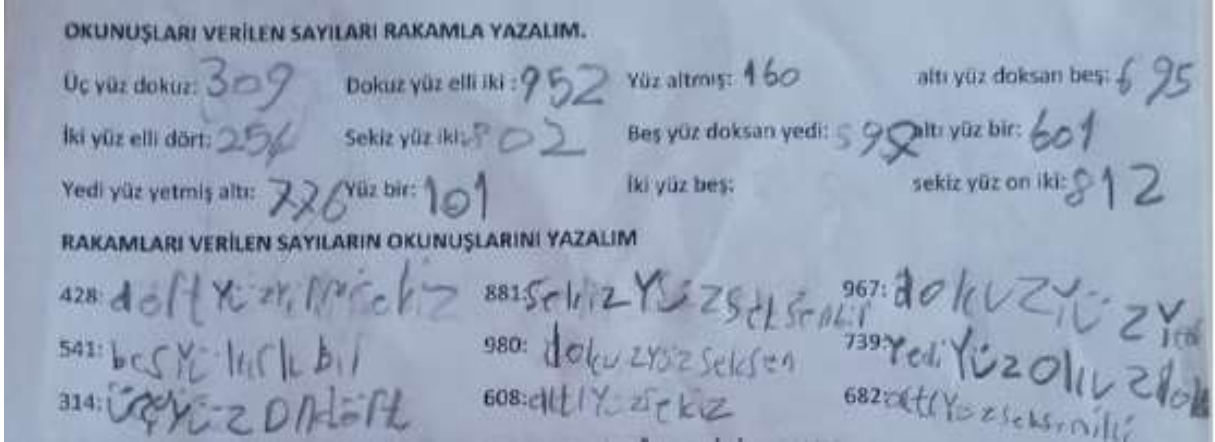 OKUNUŞLARI VERİLEN SAYILARI RAKAMLA YAZALIM.
Üç yüz dokuz: 309 Dokuz yüz elli iki : 952 Yüz altmış: 160 altı yüz doksan beş: 695
İki yüz elli dört: 254 Sekiz yüz iki: 802 Beş yüz doksan yedi: 597 altı yüz bir: 601
Yedi yüz yetmiş altı: 776 Yüz bir: 101 İki yüz beş: sekiz yüz on iki: 812
RAKAMLARI VERİLEN SAYILARIN OKUNUŞLARINI YAZALIM
428: dört yüz 881: Sekiz Yüz Seksenbir 967: dokuz yüz
541: beş yü kırk bir 980: dokuz yüz seksen 739: Yedi Yüz
314: Üçyüz Ondört 608: altı Yüz sekiz 682: altı Yüz seksen iki